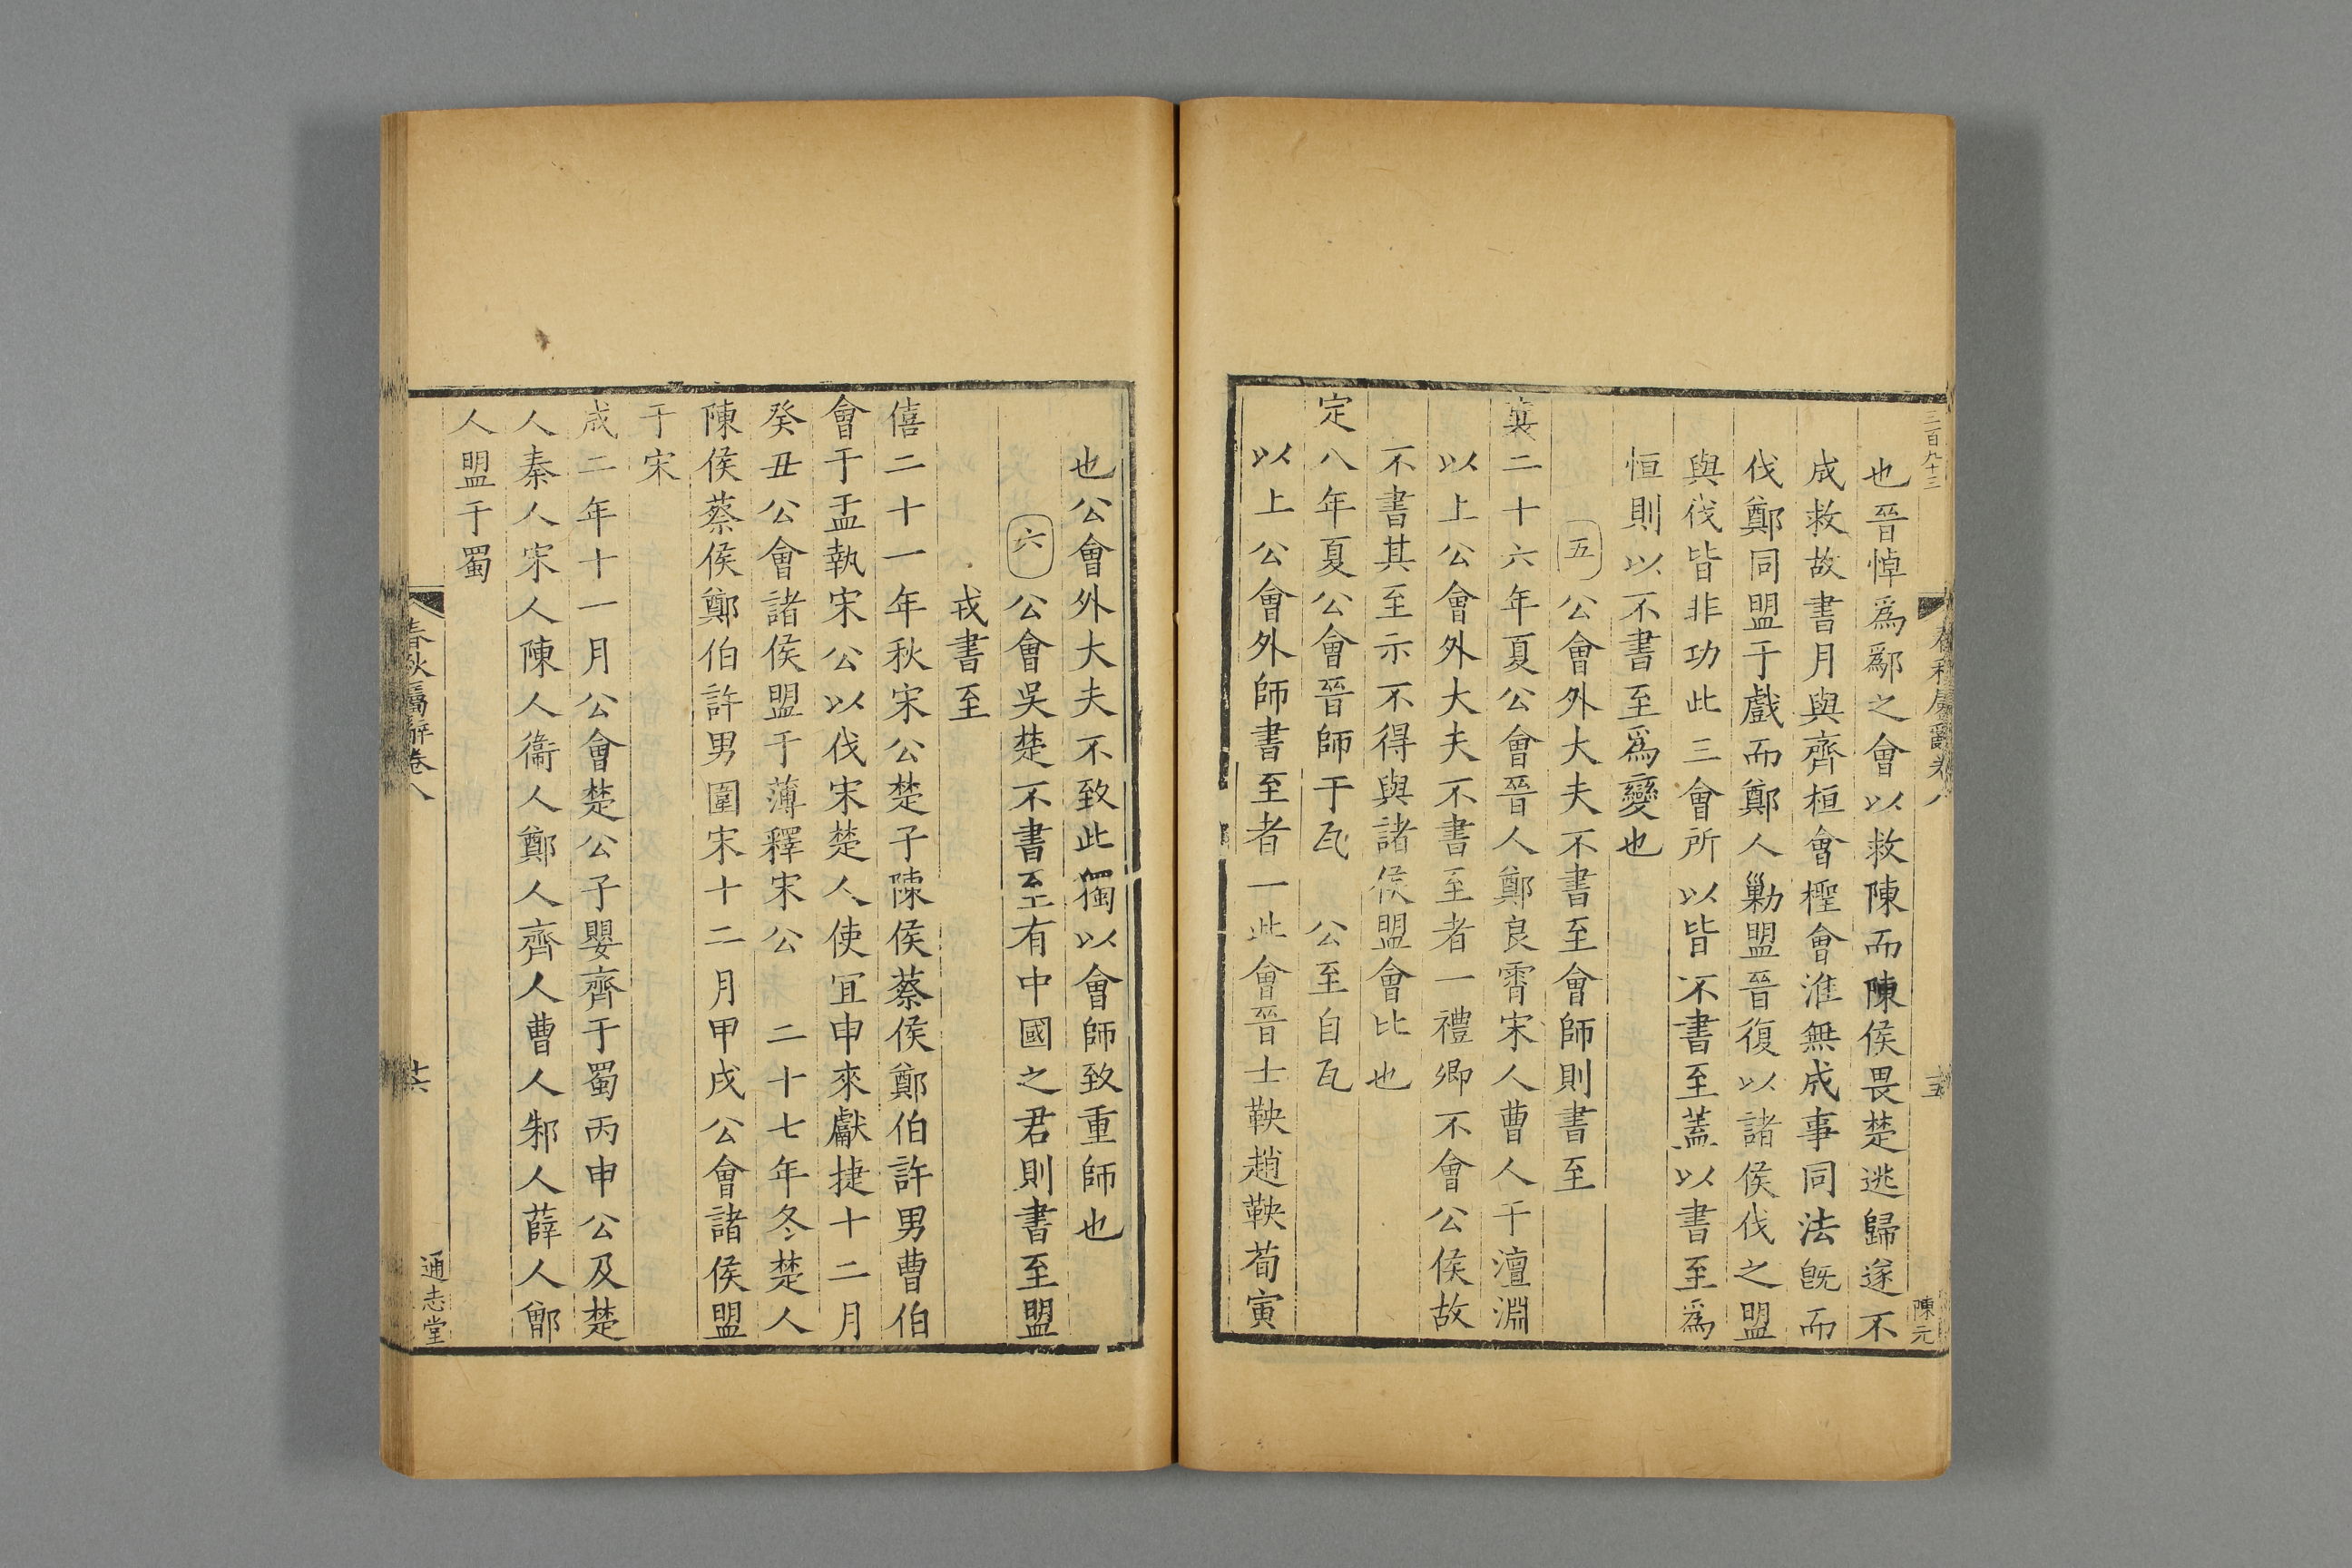 三百九十三
春秋屬辭卷八
陳元
也晉悼爲鄬之會以救陳而陳侯畏楚逃歸遂不
成救故書月與齊桓會檉會淮無成事同法旣而
伐鄭同盟于戲而鄭人勦盟晉復以諸侯伐之盟
與伐皆非功此三會所以皆不書至蓋以書至爲
恒則以不書至爲變也
五公會外大夫不書至會師則書至
襄二十六年夏公會晉人鄭良霄宋人曹人于澶淵
以上公會外大夫不書至者一禮卿不會公侯故
不書其至示不得與諸侯盟會比也
定八年夏公會晉師于瓦 公至自瓦
以上公會外師書至者一此會晉士鞅趙鞅荀寅
也公會外大夫不致此獨以會師致重師也
六公會吳楚不書至有中國之君則書至盟
戎書至
僖二十一年秋宋公楚子陳侯蔡侯鄭伯許男曹伯
會于盂執宋公以伐宋楚人使宜申來獻捷十二月
癸丑公會諸侯盟于薄釋宋公 二十七年冬楚人
陳侯蔡侯鄭伯許男圍宋十二月甲戌公會諸侯盟
于宋
成二年十一月公會楚公子嬰齊于蜀丙申公及楚
人秦人宋人陳人衞人鄭人齊人曹人邾人薛人鄫
人盟于蜀
春秋屬辭卷八
共
通志堂